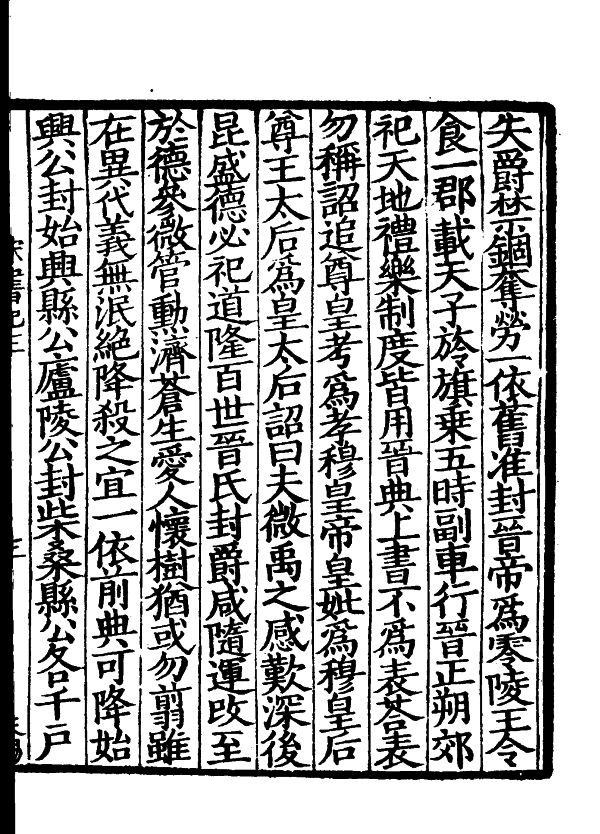 失爵禁錮奪勞一依舊准封晉帝爲零陵王令
食一郡載天子旍旗乗五時副車行晉正朔郊
祀天地禮樂制度皆用晉典上書不爲表荅表
勿稱詔追尊皇考爲孝穆皇帝皇妣爲穆皇后
尊王太后爲皇太后詔曰夫微禹之感歎深後
昆盛德必祀道隆百世晉氏封爵咸隨運改至
於德參微管勳濟蒼生愛人懷樹猶或勿翦雖
在異代義無泯絕降殺之宜一依前典可降始
興公封始興縣公廬陵公封柴桑縣公各千戶